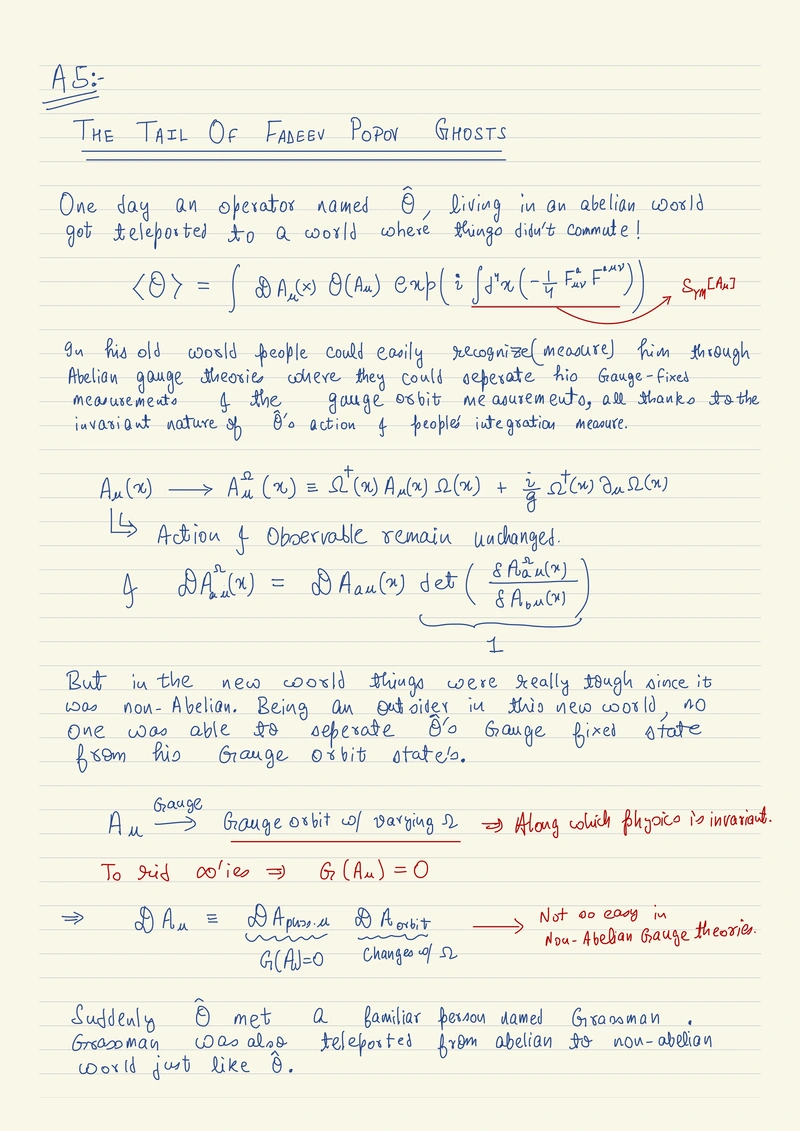 A5:-
THE TAIL OF FADEEV POPOV GHOSTS
One day an operator named Ô, living in an abelian world
got teleported to a world where things didn't commute!
⟨O⟩ = ∫ DAμ(x) O(Aμ) exp( i ∫d⁴x (-1/4 Fᵃμν Fᵃμν)) S_YM[Aμ]
In his old world people could easily recognize(measure) him through
Abelian gauge theories where they could seperate his Gauge-fixed
measurements & the gauge orbit measurements, all thanks to the
invariant nature of Ô's action & people's integration measure.
Aμ(x) ⟶ Aμ^Ω(x) ≡ Ω†(x) Aμ(x) Ω(x) + i/g Ω†(x) ∂μ Ω(x)
↳ Action & Observable remain unchanged.
& DA^Ω_aμ(x) = DA_aμ(x) det ( δA^Ω_aμ(x) / δA_bμ(x) )
1
But in the new world things were really tough since it
was non-Abelian. Being an outsider in this new world, no
one was able to seperate Ô's Gauge fixed state
from his Gauge Orbit state's.
Aμ ⟶ Gauge Gauge orbit w/ varying Ω ⇒ Along which physics is invariant.
To rid ∞'ies ⇒ G(Aμ) = 0
⇒ DAμ ≡ DA_phys.μ DA_orbit ⟶ Not so easy in
Non-Abelian Gauge theories.
G(A)=0 Changes w/ Ω
Suddenly Ô met a familiar person named Grassman .
Grassman was also teleported from abelian to non-abelian
world just like Ô.